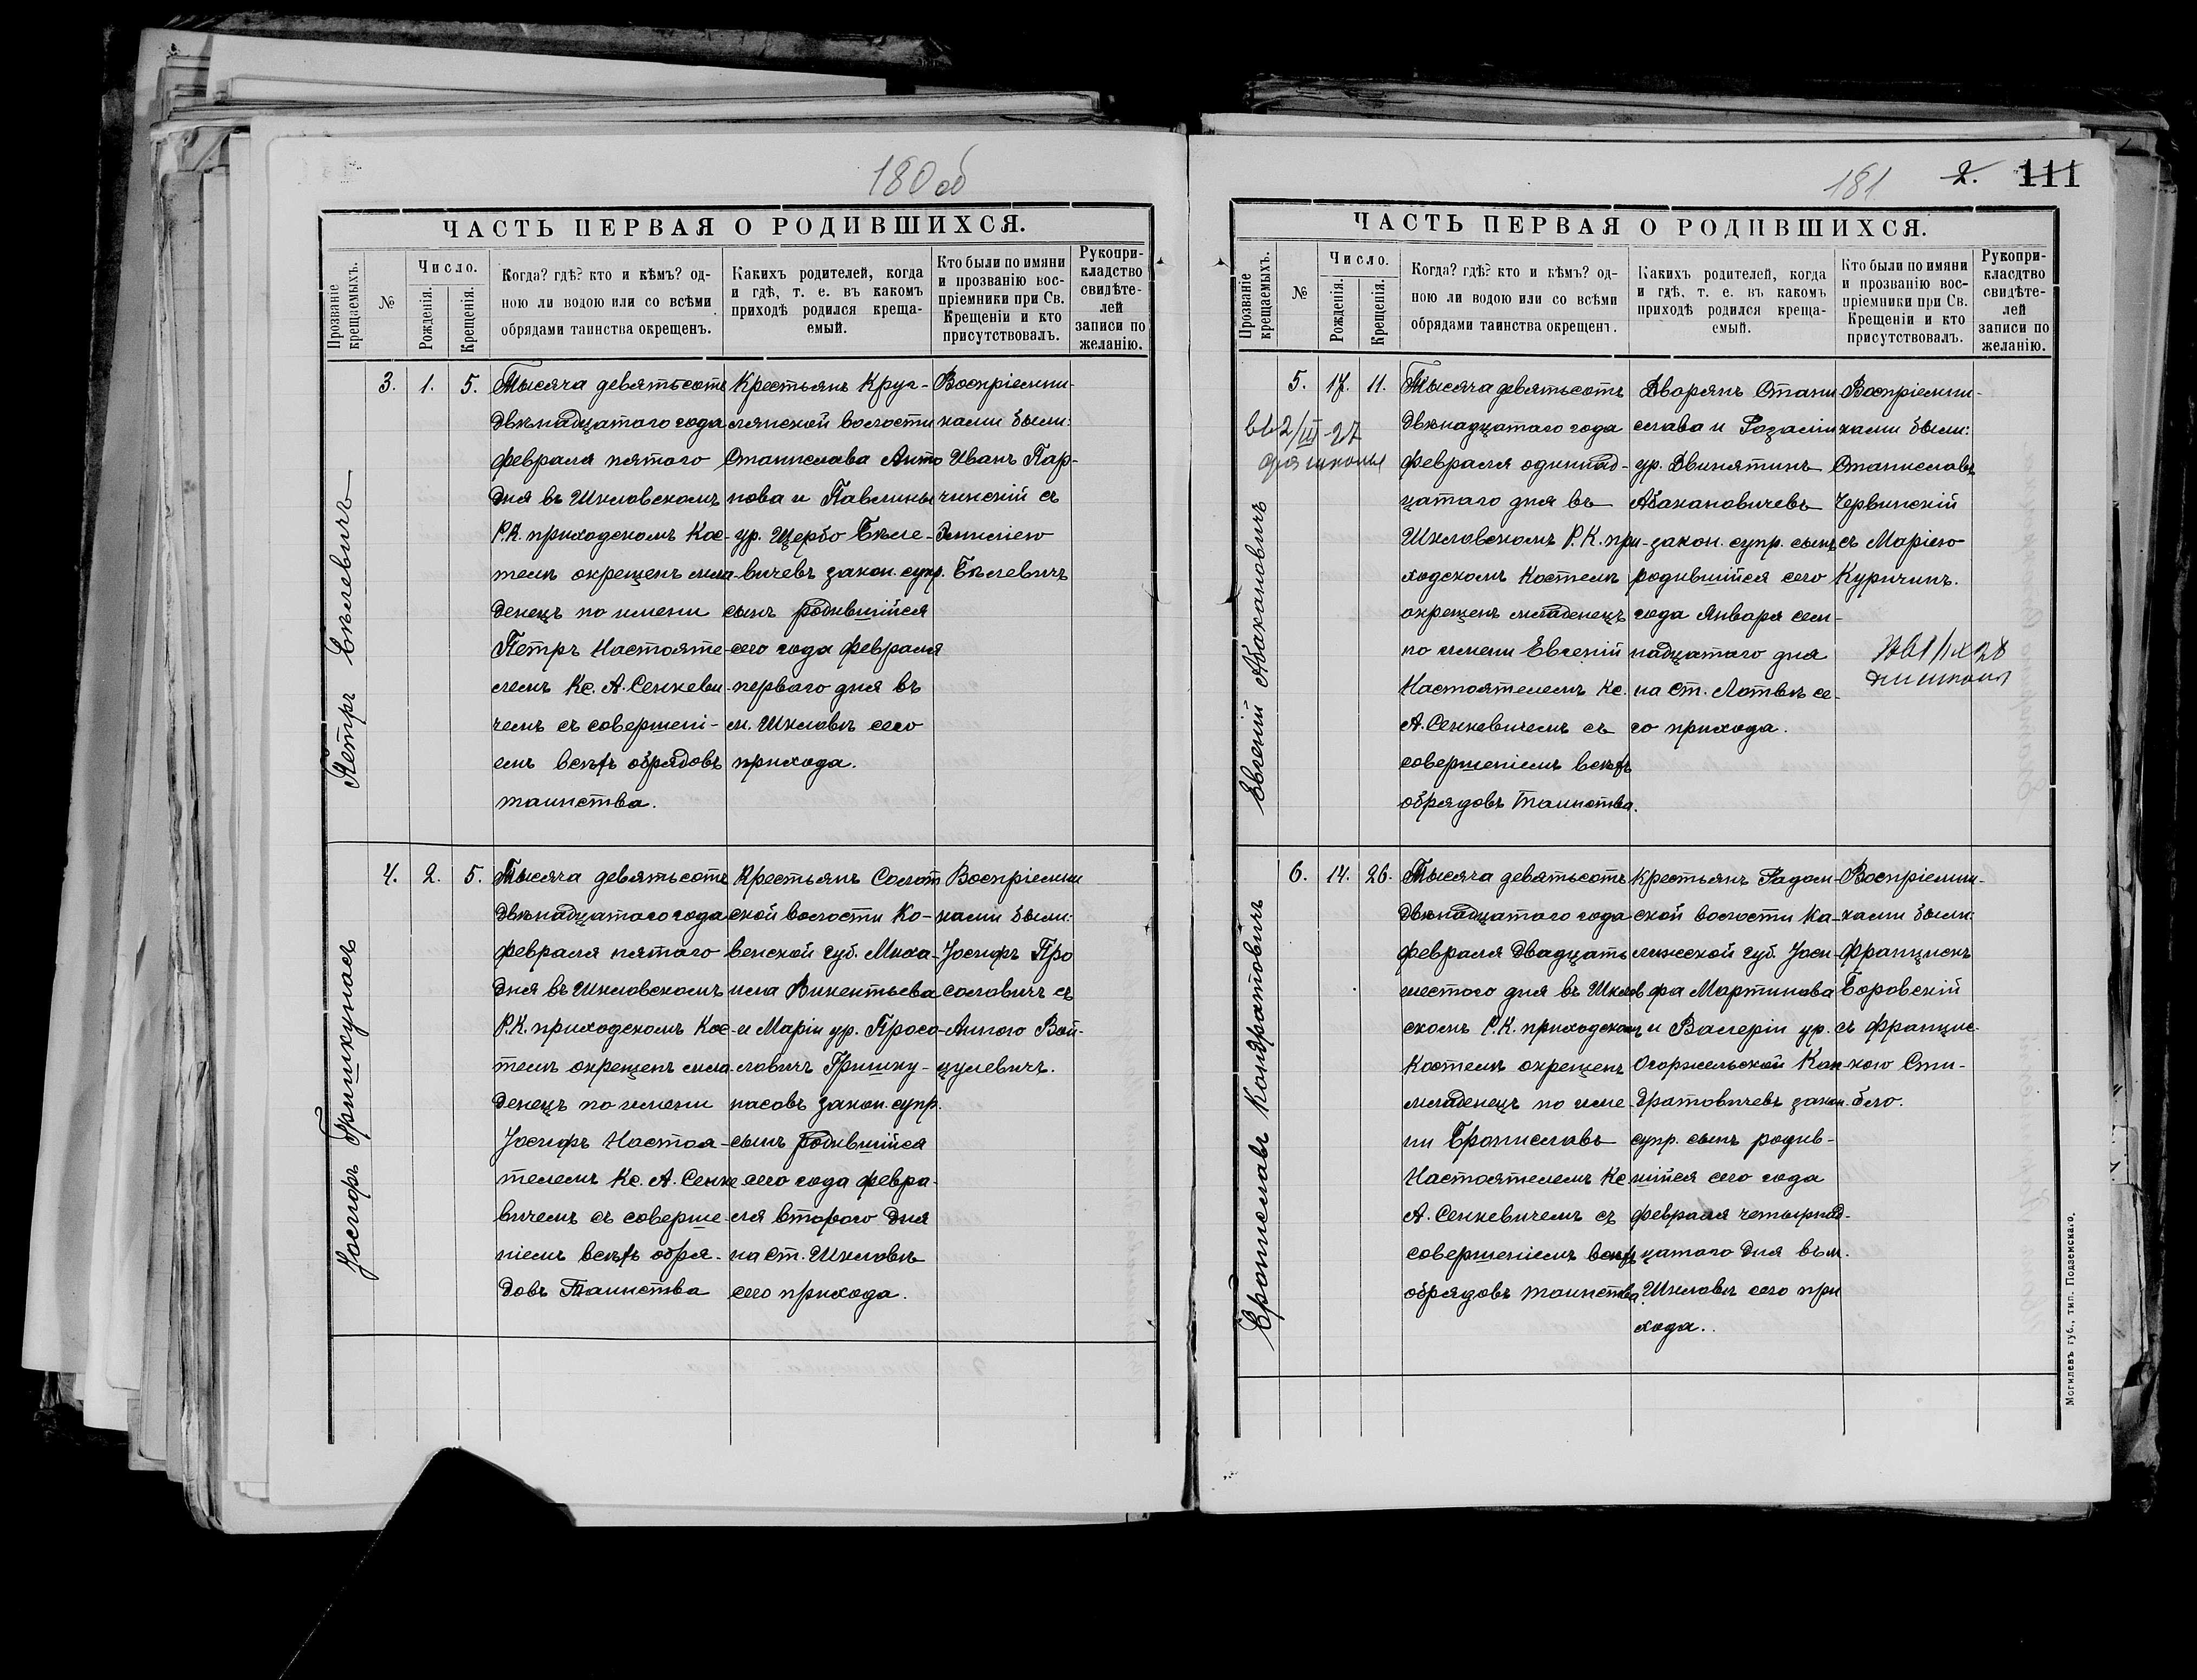 180 об
ЧАСТЬ ПЕРВАЯ О РОДИВШИХСЯ.
Прозваніе крещаемыхъ.
№
Число.
Рожденія.
Крещенія.
Когда? гдѣ? кто и кѣмъ? од-
ною ли водою или со всѣми
обрядами таинства окрещенъ.
Какихъ родителей, когда
и гдѣ, т. е. въ какомъ
приходѣ родился креща-
емый.
Кто были по имяни
и прозванію вос-
пріемники при Св.
Крещеніи и кто
присутствовалъ.
Рукопри-
кладство
свидѣте-
лей
записи по
желанію.
Петръ Бѣлевичъ
3.
1.
5.
Тысяча девятьсотъ
двѣнадцатаго года
февраля пятого
дня въ Шкловскомъ
Р.К. приходскомъ Кос-
телѣ окрещенъ мла-
денецъ по имени
Петръ Настояте-
лемъ Кс. А. Сенкеви-
чемъ съ совершені-
емъ всѣхъ обрядовъ
таинства.
Крестьянъ Круг-
лянской волости
Станислава Анто
нова и Павлины
ур. Щербо Бѣле-
вичевъ закон. супр.
сынъ родившійся
сего года февраля
первого дня въ
м. Шкловѣ сего
прихода.
Воспріемни-
ками были:
Иванъ Пар-
чинскій съ
Эмиліею
Бѣлевичъ
Іосифъ Гришкунасъ
4.
2.
5.
Тысяча девятьсотъ
двѣнадцатаго года
февраля пятого
дня въ Шкловскомъ
Р.К. приходскомъ Кос-
телѣ окрещенъ мла-
денецъ по имени
Іосифъ Настоя-
телемъ Кс. А. Сенке
вичемъ съ соверше-
ніемъ всѣхъ обря-
довъ Таинства
Крестьянъ Солот
ской волости Ко-
венской губ. Миха-
ила Викентьева
и Маріи ур. Просо-
ловичъ Гришку-
насовъ закон. супр.
сынъ родившійся
сего года февра-
ля второго дня
на ст. Шкловѣ
сего прихода.
Воспріемни
ками были:
Іосифъ Про
соловичъ съ
Анною Вой-
цулевичъ.
181
2.
111
ЧАСТЬ ПЕРВАЯ О РОДИВШИХСЯ.
Прозваніе крещаемыхъ.
№
Число.
Рожденія.
Крещенія.
Когда? гдѣ? кто и кѣмъ? од-
ною ли водою или со всѣми
обрядами таинства окрещенъ.
Какихъ родителей, когда
и гдѣ, т. е. въ какомъ
приходѣ родился креща-
емый.
Кто были по имяни
и прозванію вос-
пріемники при Св.
Крещеніи и кто
присутствовалъ.
Рукопри-
класдтво
свидѣте-
лей
записи по
желанію.
Евгеній Абакановичъ
5.
17.
11.
2/III-27
для школы
Тысяча девятьсотъ
двѣнадцатаго года
февраля одиннад-
цатаго дня въ
Шкловскомъ Р.К. при-
ходскомъ Костелѣ
окрещенъ младенецъ
по имени Евгеній
Настоятелемъ Кс.
А. Сенкевичемъ съ
совершеніемъ всѣхъ
обрядовъ Таинства.
Дворянъ Стани
слава и Розаліи
ур. Двинятинъ
Абакановичевъ
закон. супр. сынъ
родившійся сего
года Января сем-
надцатаго дня
на ст. Лотвѣ се-
го прихода.
Воспріемни-
ками были:
Станиславъ
Червинскій
съ Маріею
Куричинъ.
Брониславъ Кондратовичъ
6.
14.
26.
Тысяча девятьсотъ
двѣнадцатаго года
февраля двадцать
шестого дня въ Шклов
скомъ Р.К. приходскомъ
Костелѣ окрещенъ
младенецъ по име-
ни Брониславъ
Настоятелемъ Кс
А. Сенкевичемъ съ
совершеніемъ всѣхъ
обрядовъ таинства.
Крестьянъ Радом-
ской волости Ка-
лижской губ. Іоси-
фа Мартинова
и Валеріи ур.
Огоржельской Кон-
дратовичевъ закон.
супр. сынъ родив-
шійся сего года
февраля четырнад-
цатаго дня въ м.
Шкловѣ сего при
хода.
Воспріемни-
ками были:
Францискъ
Боровскій
съ Францис-
кою Сти-
бло.
Могилевъ губ., тип. Подземскаго.